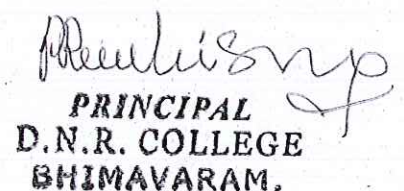 PRINCIPAL
D.N.R. COLLEGE
BHIMAVARAM.